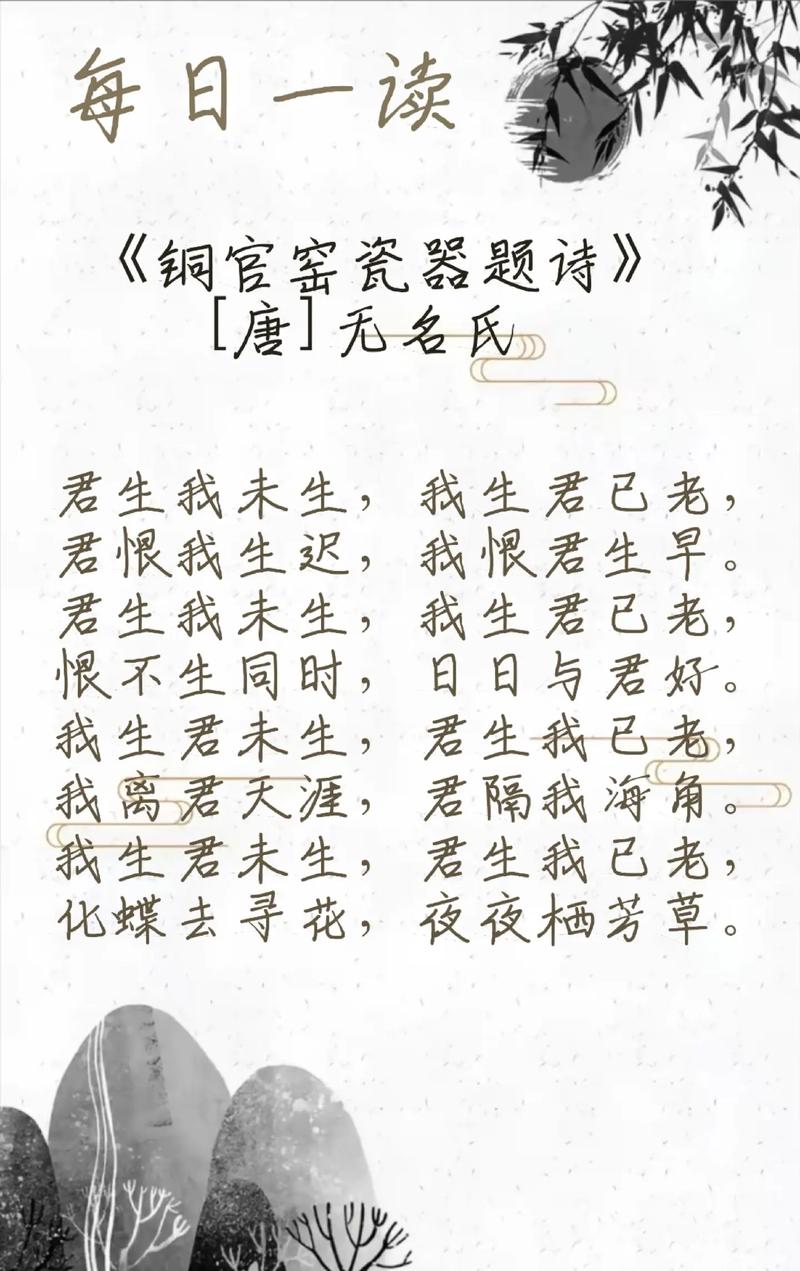 每日一读
《铜官窑瓷器题诗》
[唐]无名氏
君生我未生，我生君已老，
君恨我生迟，我恨君生早。
君生我未生，我生君已老，
恨不生同时，日日与君好。
我生君未生，君生我已老，
我离君天涯，君隔我海角。
我生君未生，君生我已老，
化蝶去寻花，夜夜栖芳草。